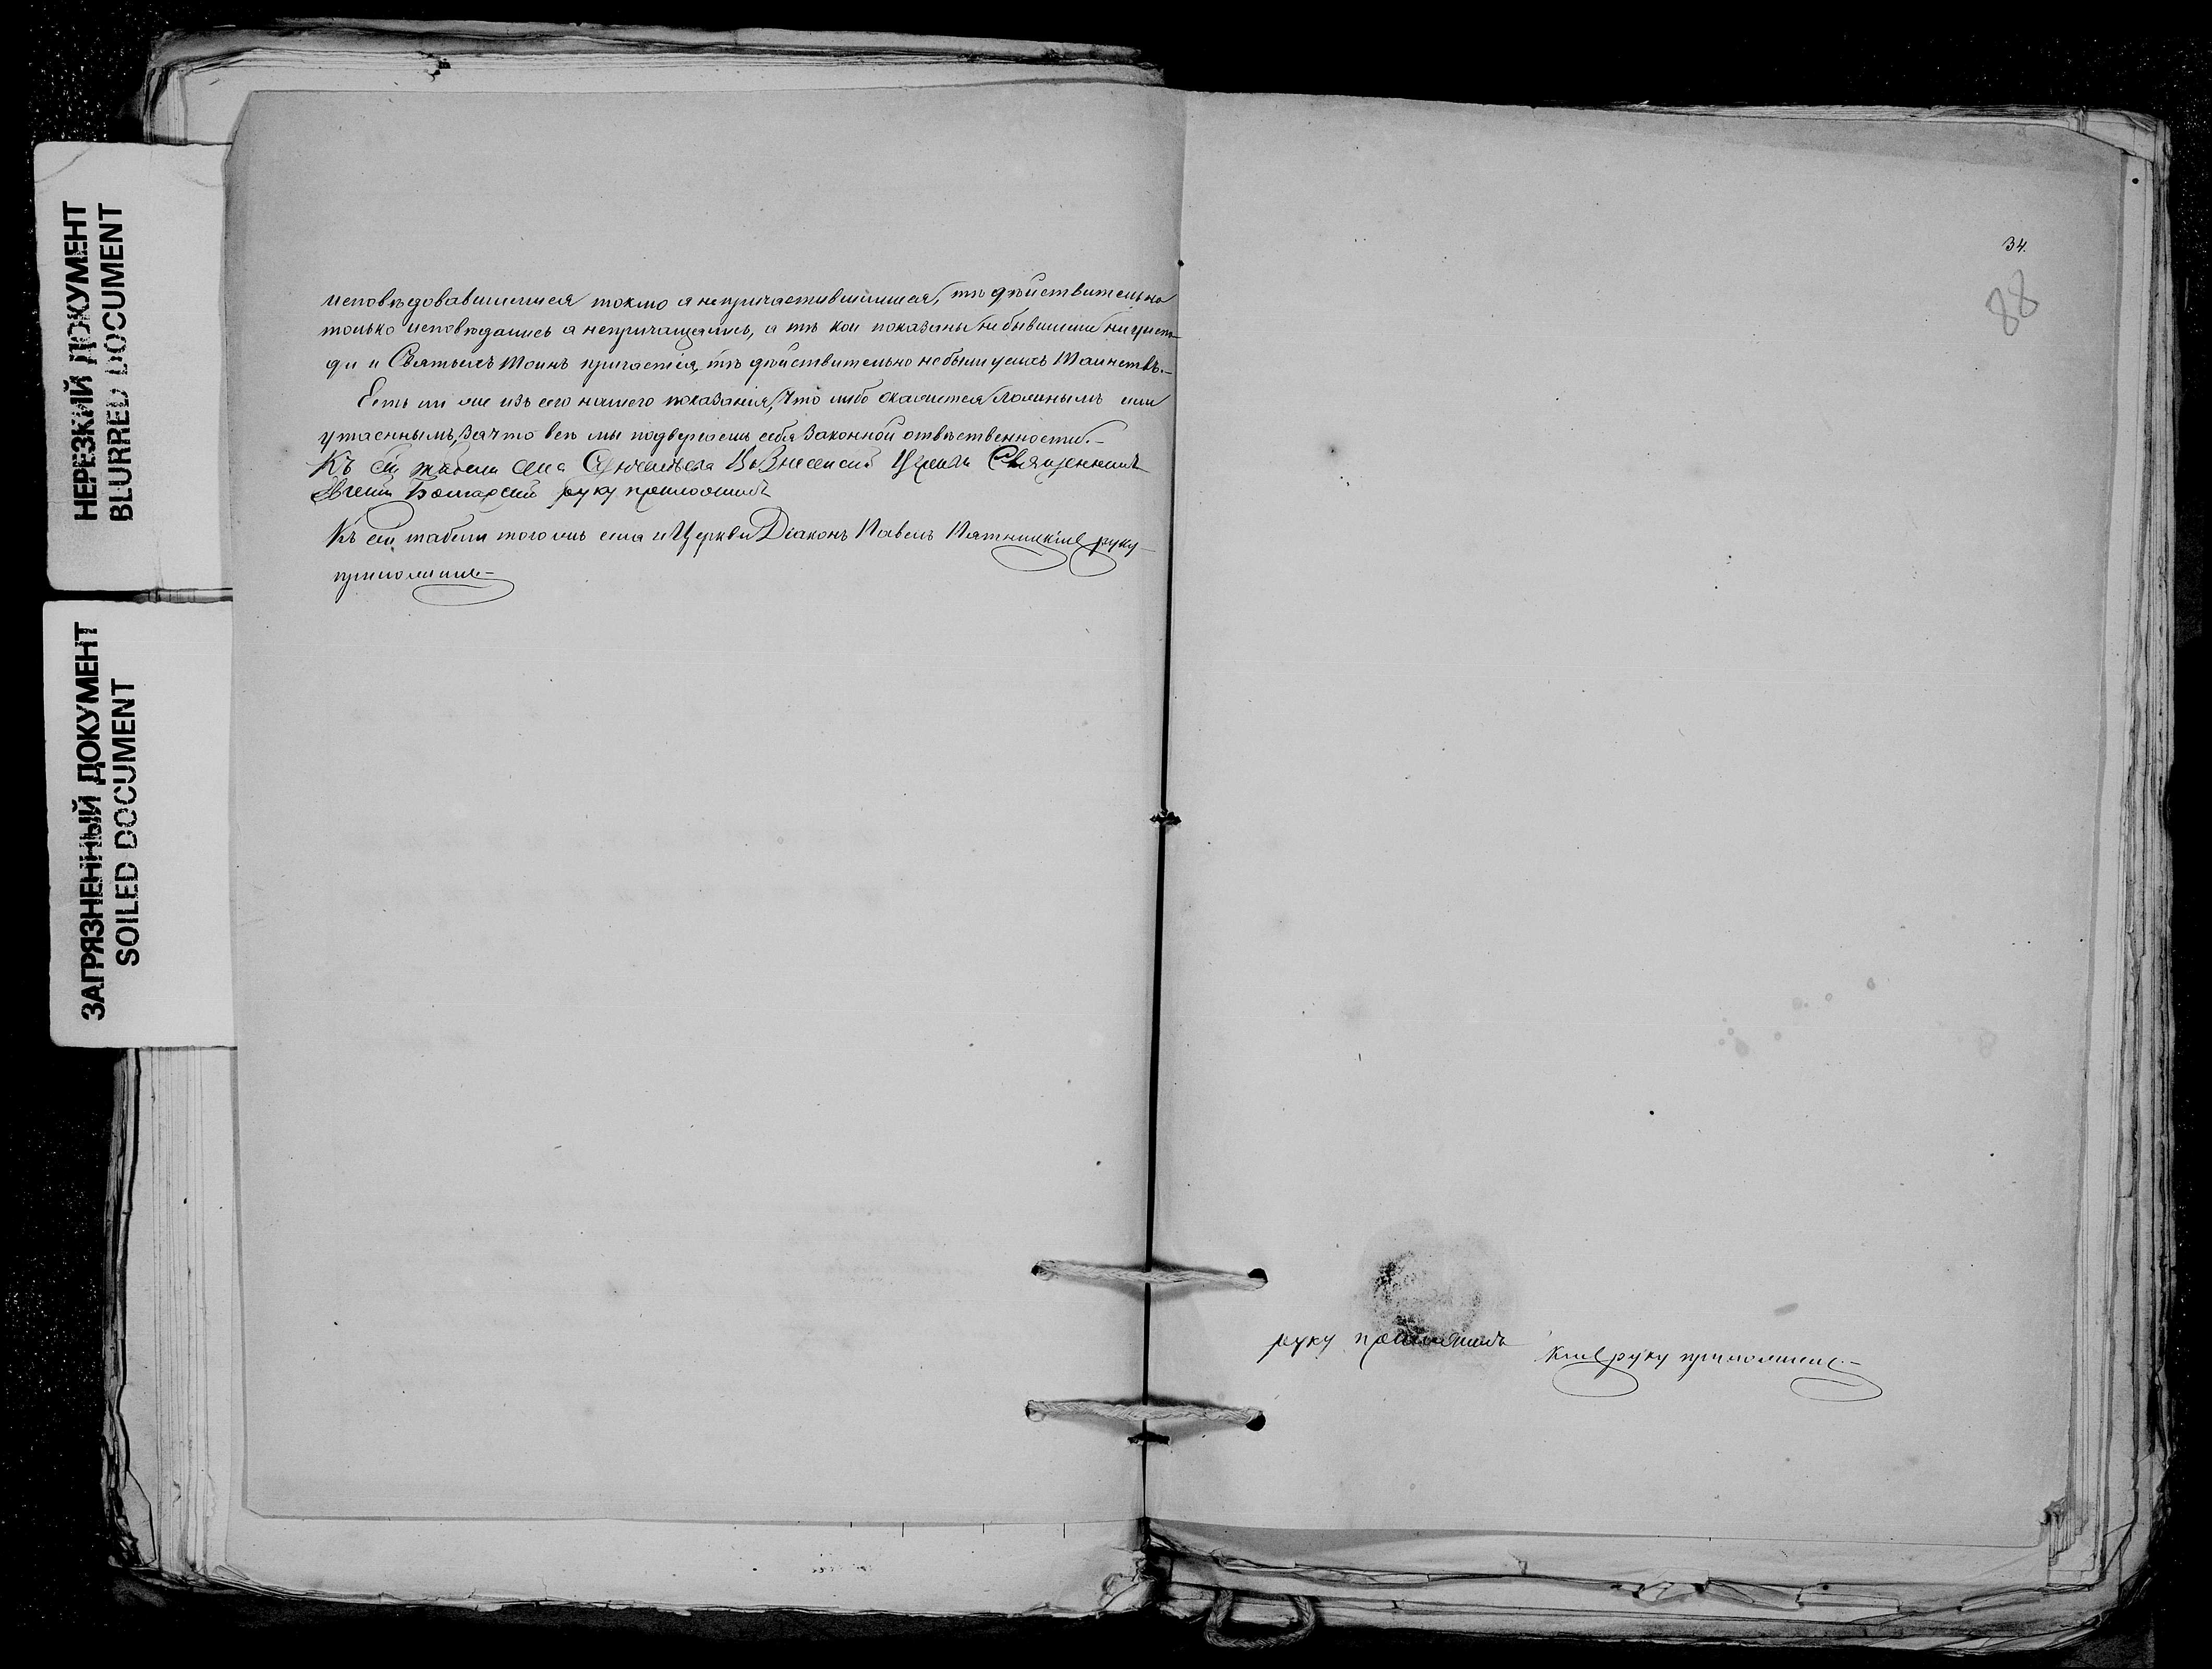 НЕРЕЗКИЙ ДОКУМЕНТ
BLURRED DOCUMENT
ЗАГРЯЗНЕННЫЙ ДОКУМЕНТ
SOILED DOCUMENT
исповѣдовавшимися токмо а непричастившимися, тѣ дѣйствительно
только исповѣдались а непричащались, а тѣ кои показаны небывшими
и Святыхъ Таинъ причастія, тѣ дѣйствительно небыли усихъ Таинствъ.-
Есть ли же изъ сего нашего показанія, что либо окажется ложнымъ или
утаеннымъ, за что всѣ мы подвергаемъ себя законной отвѣтственности.-
Къ сей табели села Вознесенской Церкви Священникъ
руку приложилъ
Къ сей табели того жъ села и Церкви Діаконъ Павелъ Пятницкій руку
приложилъ-
34.
88
руку приложилъ
кій руку приложилъ.-